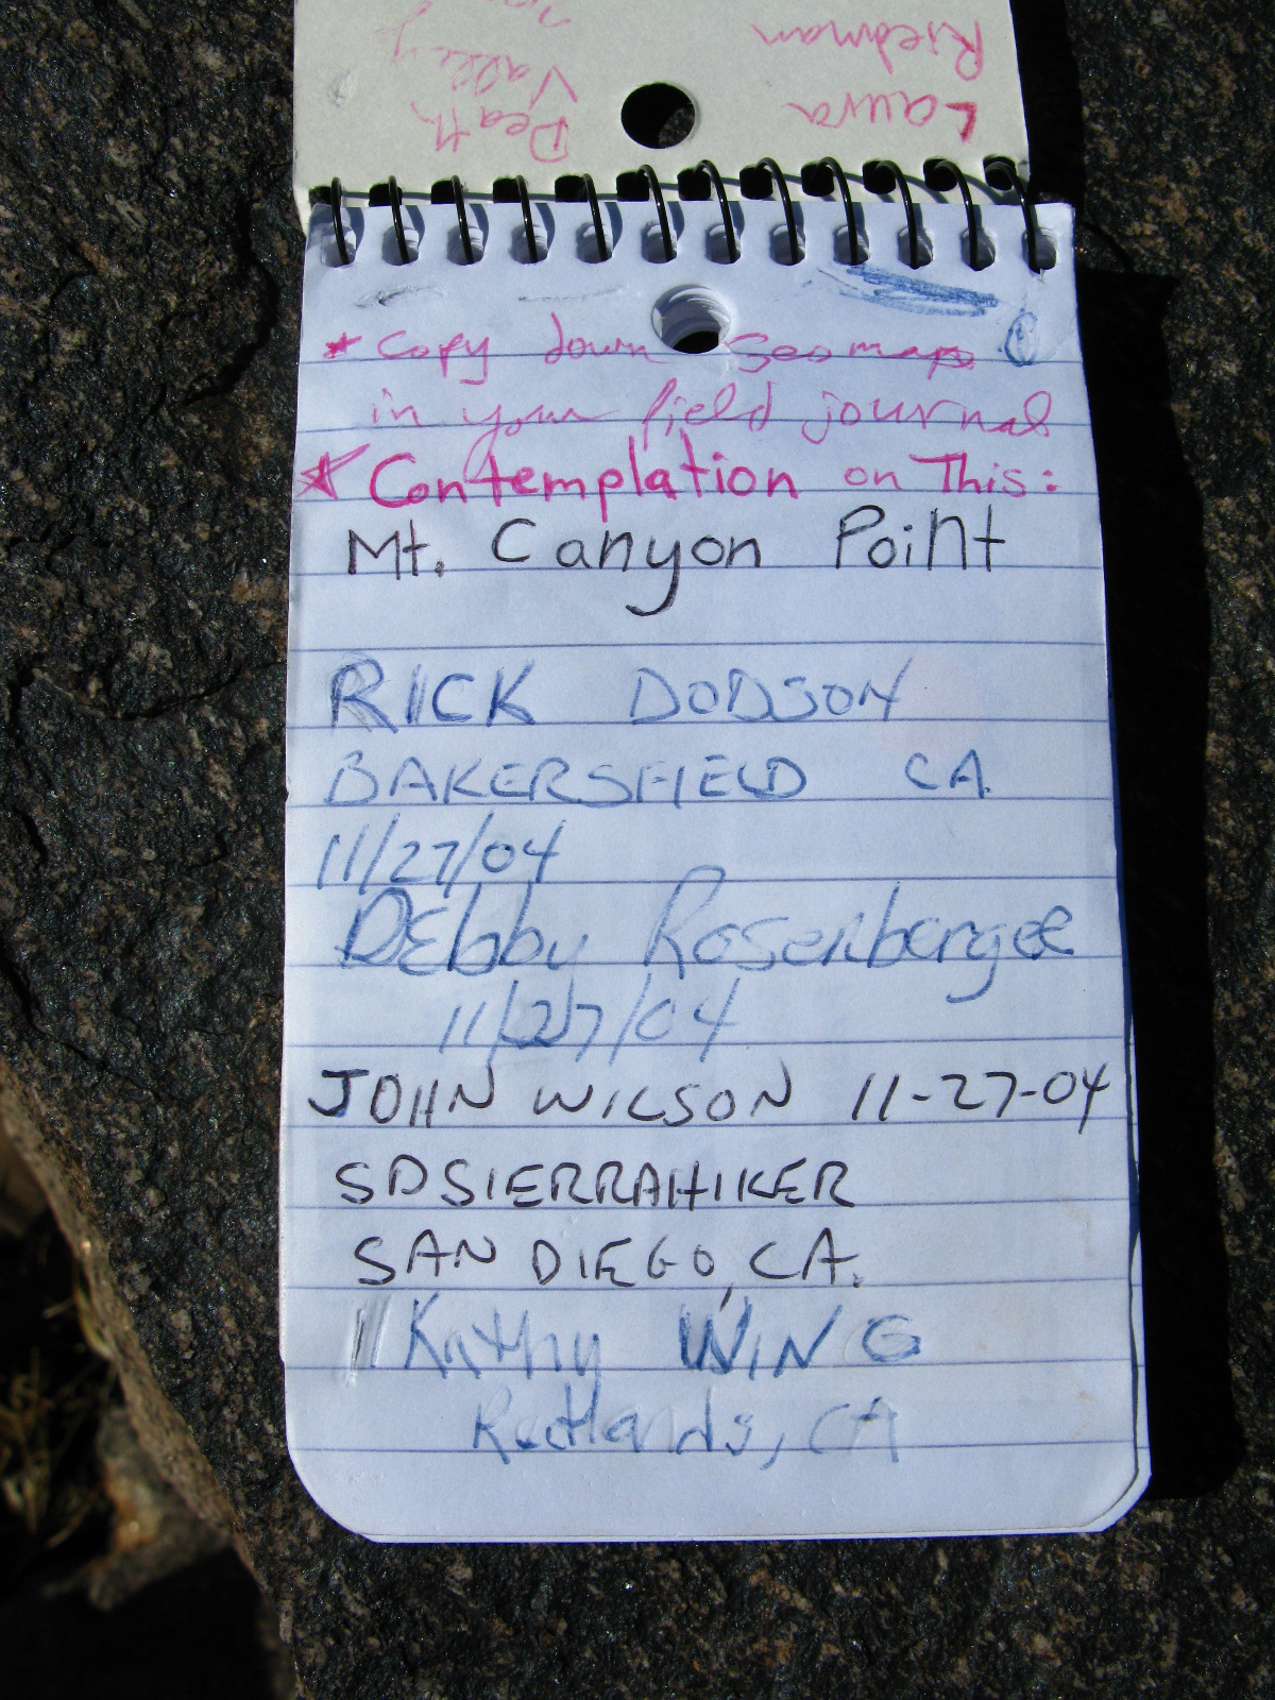 Laura
Riedman
Death
Valley
* Copy down Geo maps
in your field journal
* Contemplation on This:
Mt. Canyon Point
RICK DODSON
BAKERSFIELD CA.
11/27/04
DEbby Rosenbergee
11/27/04
JOHN WILSON 11-27-04
SDSIERRAHIKER
SAN DIEGO, CA.
Kathy WiNG
Redlands, CA